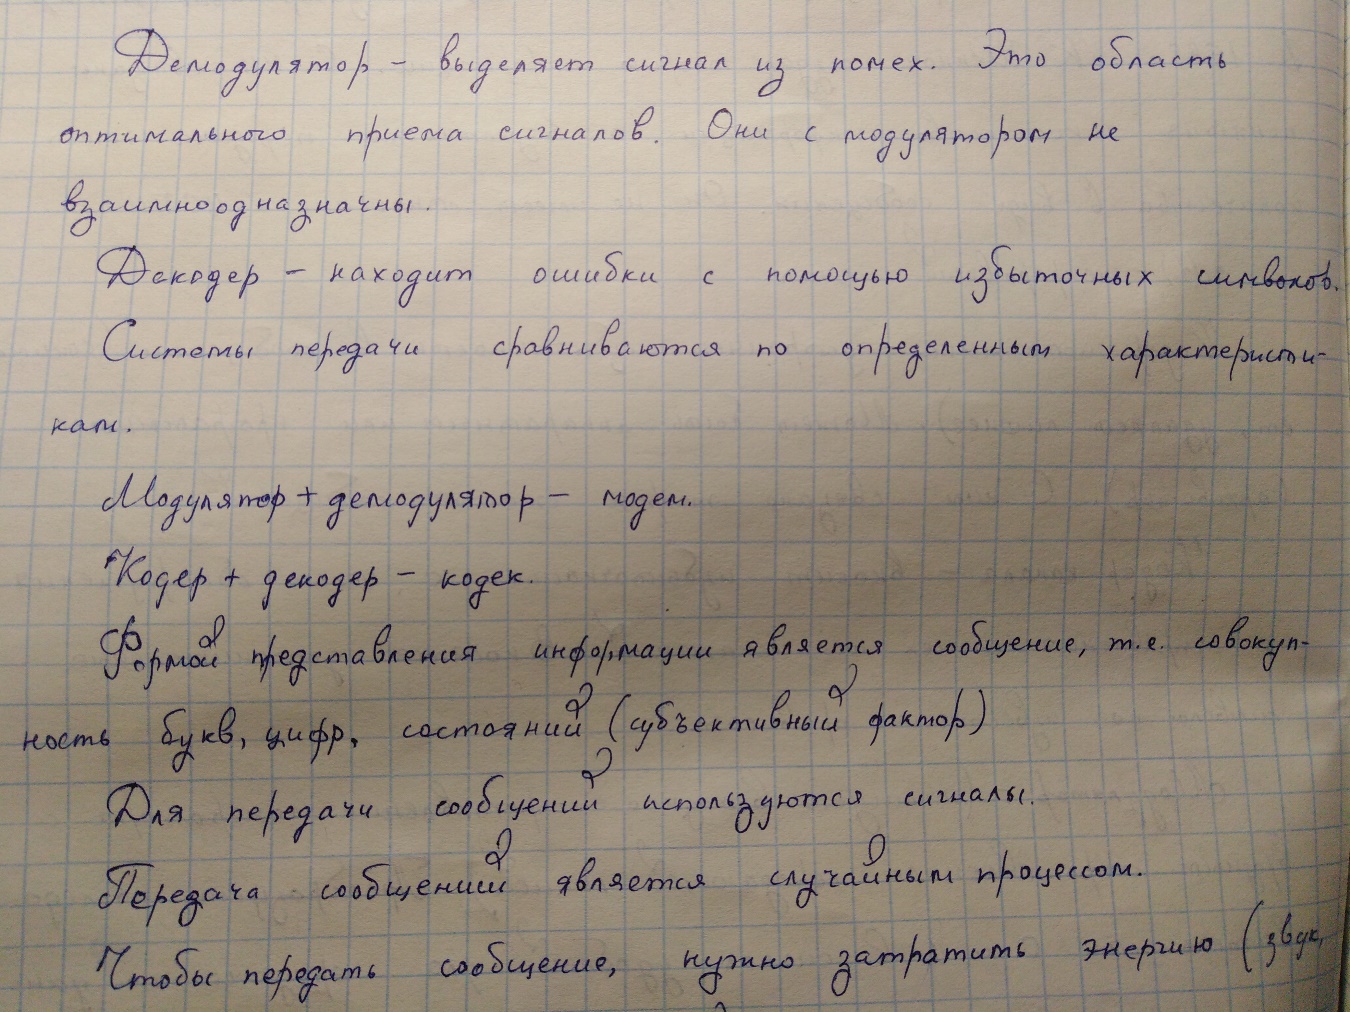 Демодулятор – выделяет сигнал из помех. Это область
оптимального приема сигналов. Они с модулятором не
взаимнооднозначны.
Декодер – находит ошибки с помощью избыточных символов.
Системы передачи сравниваются по определенным характеристи-
кам.
Модулятор + демодулятор – модем.
Кодер + декодер – кодек.
Формой представления информации является сообщение, т.е. совокуп-
ность букв, цифр, состояний (субъективный фактор)
Для передачи сообщений используются сигналы.
Передача сообщений является случайным процессом.
Чтобы передать сообщение, нужно затратить энергию (звук,